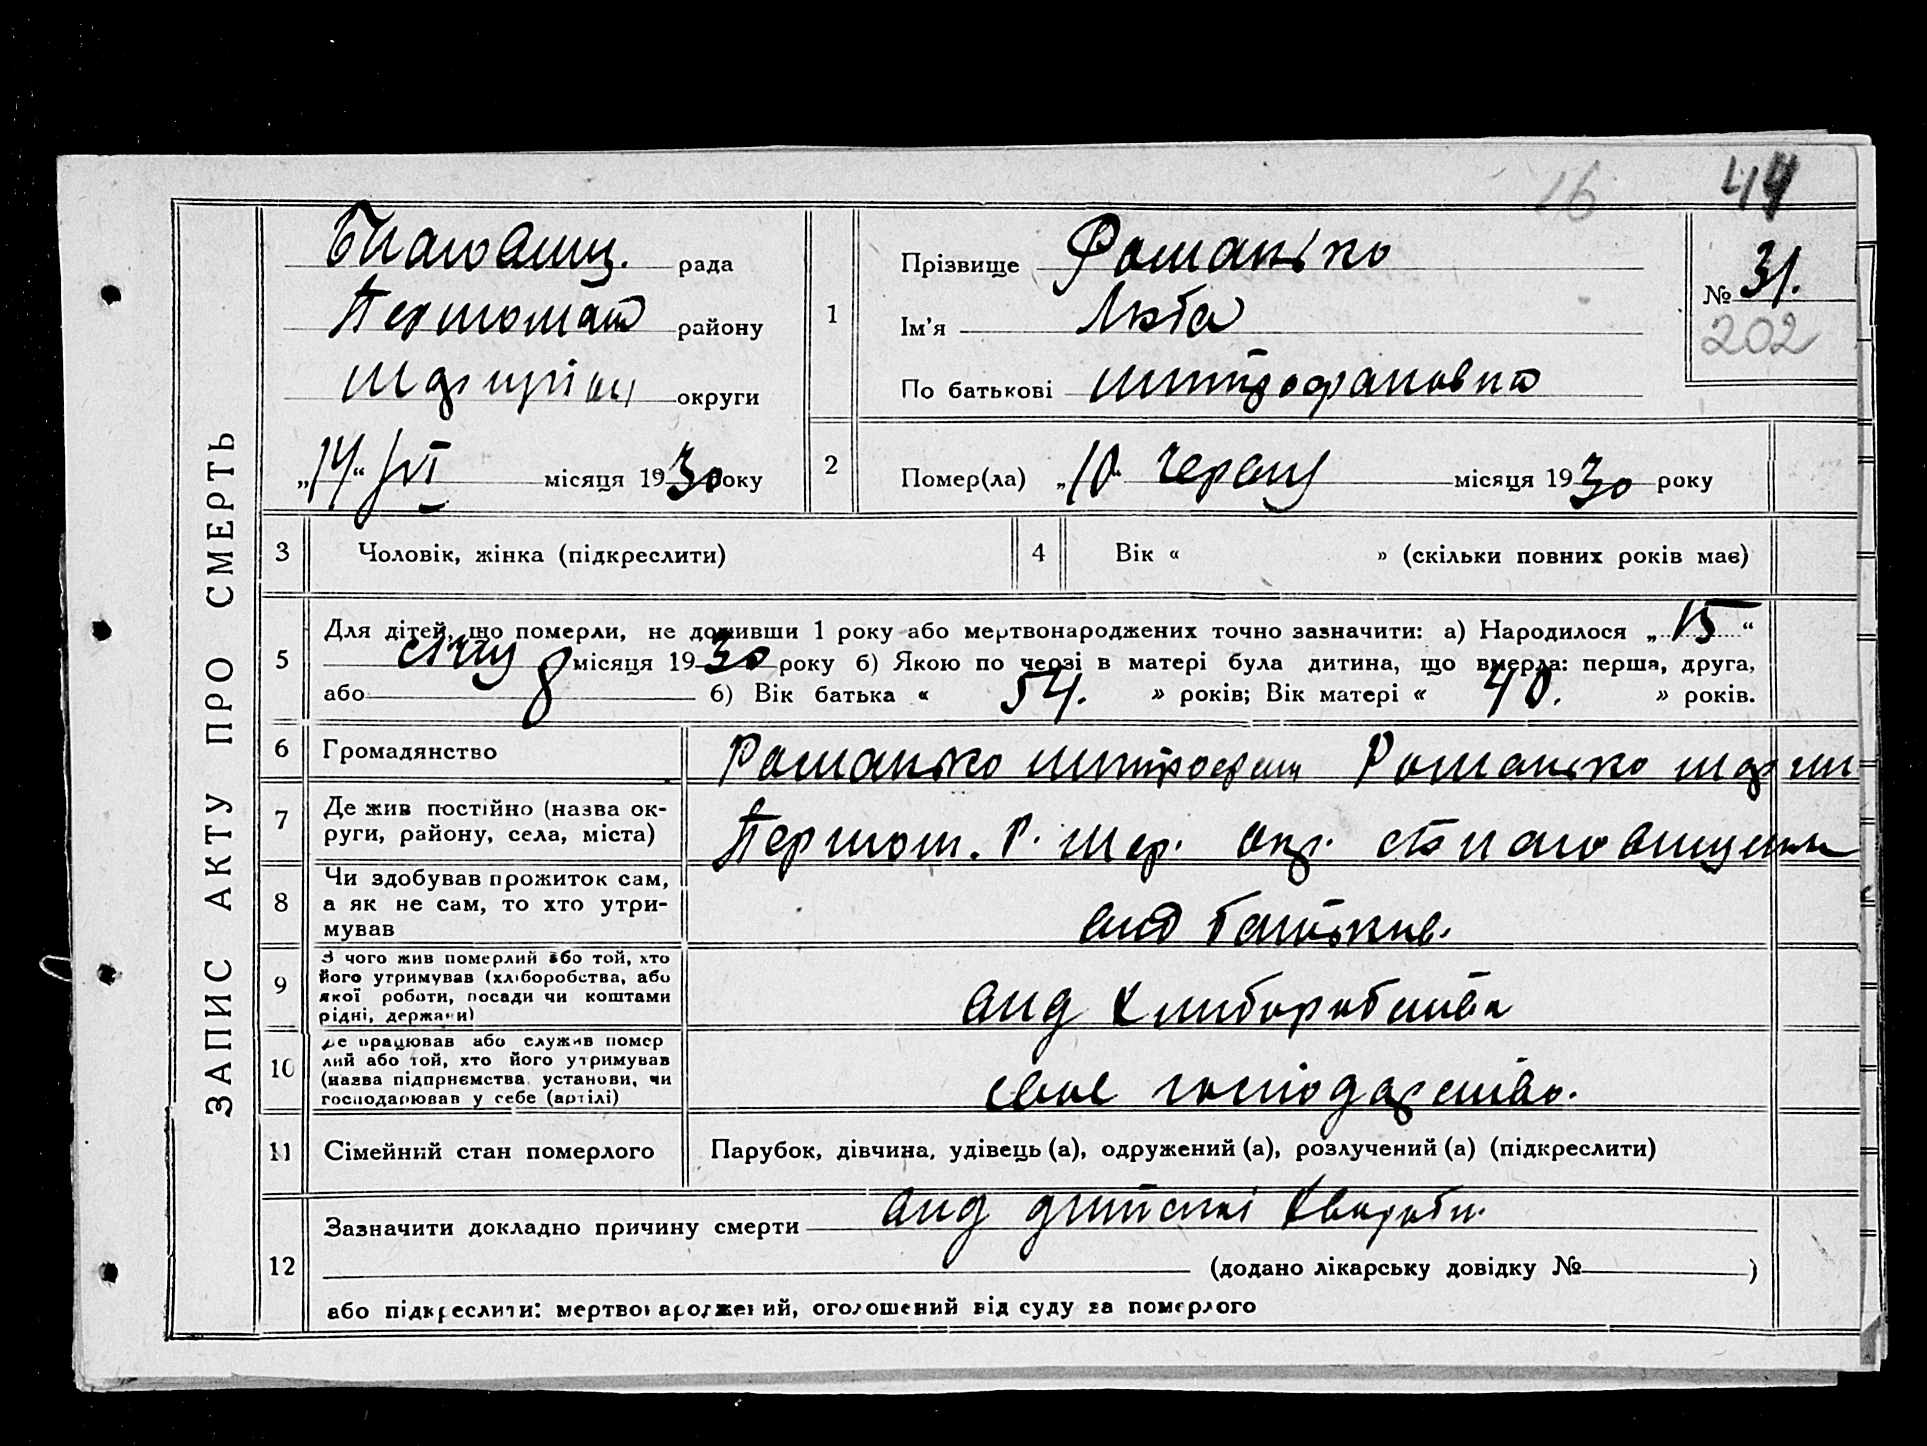 16 44
Благовищ. рада
району
округи
„14“ VI місяця 1930 року
1
Прізвище Романько
Ім’я Люба
По батькові Митрофановна
№ 31.
202
2
Помер(ла) „10“ червня місяця 1930 року
ЗАПИС АКТУ ПРО СМЕРТЬ
3 Чоловік, жінка (підкреслити)
4 Вік « » (скільки повних років має)
5
Для дітей, що померли, не доживши 1 року або мертвонароджених точно зазначити: а) Народилося „15“
січня місяця 1930 року б) Якою по черзі в матері була дитина, що вмерла: перша, друга,
або 8 б) Вік батька « 54. » років; Вік матері « 40. » років.
6 Громадянство Романько Митрофан Романько
7
Де жив постійно (назва ок-
руги, району, села, міста)
Р. окр.
8
Чи здобував прожиток сам,
а як не сам, то хто утри-
мував
вид батькив.
9
З чого жив померлий або той, хто
його утримував (хліборобства, або
якої роботи, посади чи коштами
рідні, держави)
вид хлиборобства
10
Де працював або служив помер
лий або той, хто його утримував
(назва підприємства, установи, чи
господарював у себе (артілі)
своє господарство.
11 Сімейний стан померлого Парубок, дівчина, удівець (а), одружений (а), розлучений (а) (підкреслити)
12
Зазначити докладно причину смерти вид дитской хвороби.
(додано лікарську довідку № )
або підкреслити: мертвонароджений, оголошений від суду за померлого